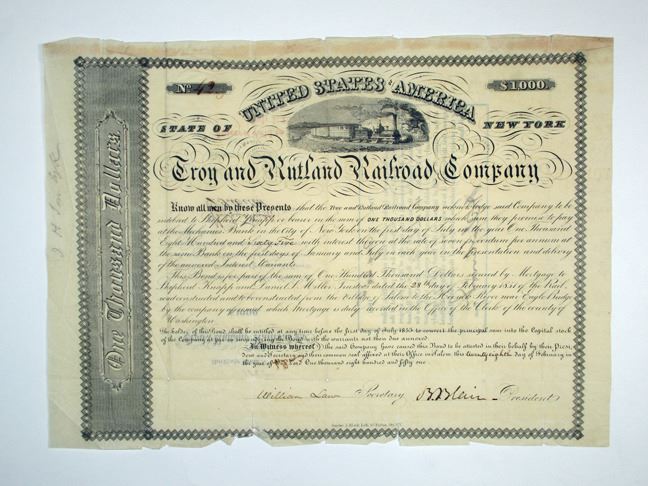 No 42
$1,000.
UNITED STATES AMERICA
STATE OF NEW YORK
Troy and Rutland Railroad Company
One Thousand Dollars
Know all men by these Presents that the Troy and Rutland Railroad Company acknowledge said Company to be
indebted to Shepherd Knapp or bearer in the sum of ONE THOUSAND DOLLARS which sum they promise to pay
at the Mechanics Bank in the City of New York on the first day of July in the year One Thousand
Eight Hundred and Sixty Five with interest thereon at the rate of seven per centum per annum at
the same Bank on the first days of January and July in each year on the presentation and delivery
of the annexed Interest Warrants
This Bond is for part of the sum of One Hundred Thousand Dollars secured by Mortgage to
Shepherd Knapp and Daniel L. Miller Trustees dated the 28th day of February 1851 of the Road
constructed and to be constructed from the Village of Salem to the Hoosick River near Eagle Bridge
by the company which Mortgage is duly recorded in the Office of the Clerk of the county of
Washington
The holder of this Bond shall be entitled at any time before the first day of July 1855 to convert the principal sum into the Capital stock
of the Company at par on surrendering the Bond with the warrants not then due annexed
In Witness whereof the said Company have caused this Bond to be attested in their behalf by their Presi-
dent and Secretary and their common seal affixed at their Office in Salem this twenty eighth day of February in
the year of one thousand eight hundred and fifty one.
William Law Secretary
President